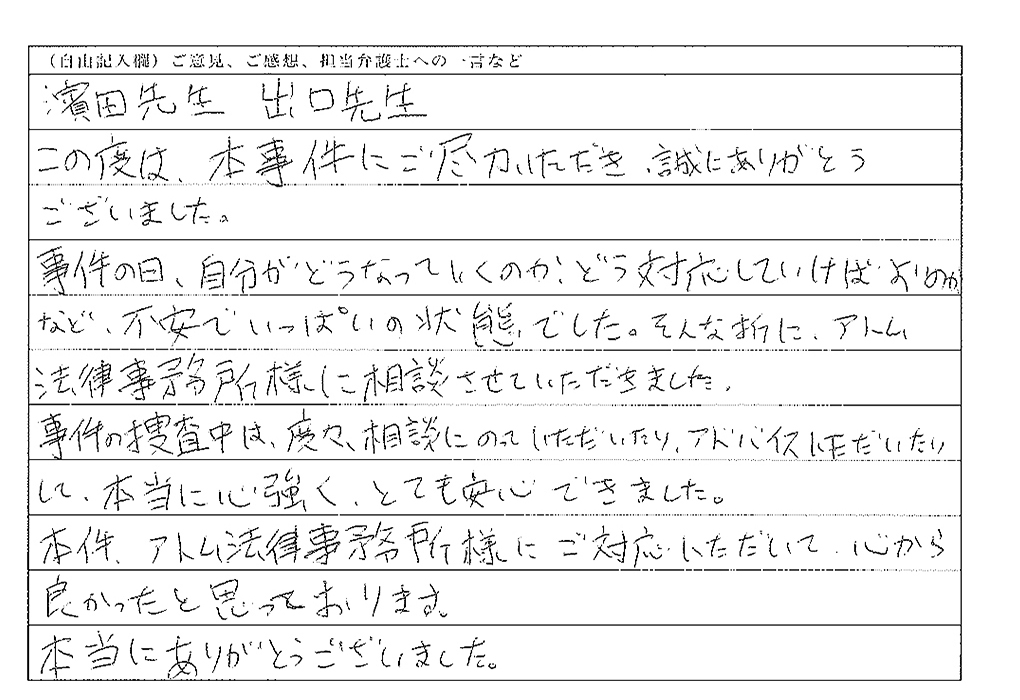 （自由記入欄）ご意見、ご感想、担当弁護士への一言など
濱田先生　出口先生
この度は、本事件にご尽力いただき、誠にありがとう
ございました。
事件の日、自分がどうなっていくのか、どう対応していけばよいのか
など、不安でいっぱいの状態でした。そんな折に、アトム
法律事務所様に相談させていただきました。
事件の捜査中は、度々、相談にのっていただいたり、アドバイスいただいたり
して、本当に心強く、とても安心できました。
本件、アトム法律事務所様にご対応いただいて、心から
良かったと思っております。
本当にありがとうございました。